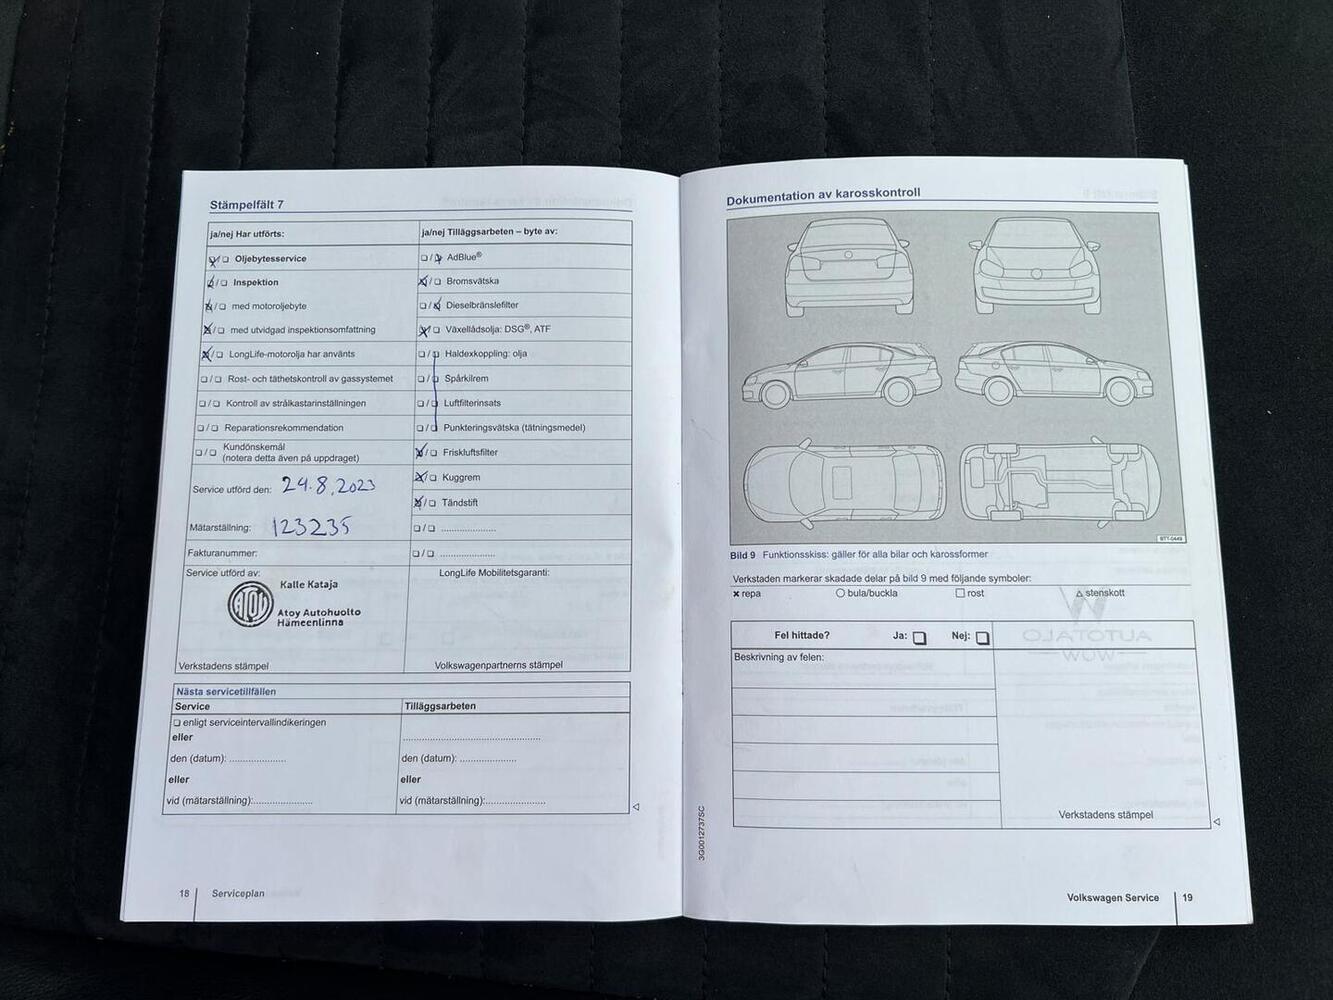 Stämpelfält 7
ja/nej Har utförts:
☒/☐ Oljebytesservice
☒/☐ Inspektion
☒/☐ med motoroljebyte
☒/☐ med utvidgad inspektionsomfattning
☒/☐ LongLife-motorolja har använts
☐/☐ Rost- och täthetskontroll av gassystemet
☐/☐ Kontroll av strålkastarinställningen
☐/☐ Reparationsrekommendation
☐/☐ Kundönskemål
(notera detta även på uppdraget)
Service utförd den: 24.8.2023
Mätarställning: 123235
Fakturanummer:
Service utförd av:
Kalle Kataja
ATOY
Atoy Autohuolto
Hämeenlinna
Verkstadens stämpel
ja/nej Tilläggsarbeten – byte av:
☐/☒ AdBlue®
☒/☐ Bromsvätska
☐/☒ Dieselbränslefilter
☒/☐ Växellådsolja: DSG®, ATF
☐/☐ Haldexkoppling: olja
☐/☐ Spårkilrem
☐/☐ Luftfilterinsats
☐/☐ Punkteringsvätska (tätningsmedel)
☒/☐ Friskluftsfilter
☒/☐ Kuggrem
☒/☐ Tändstift
☐/☐ ....................
☐/☐ ....................
LongLife Mobilitetsgaranti:
Volkswagenpartnerns stämpel
Nästa servicetillfällen
Service
☐ enligt serviceintervallindikeringen
eller
den (datum): ....................
eller
vid (mätarställning):....................
Tilläggsarbeten
..................................................
den (datum): ....................
eller
vid (mätarställning):....................
18 Serviceplan
Dokumentation av karosskontroll
BTT-0449
Bild 9 Funktionsskiss: gäller för alla bilar och karossformer
Verkstaden markerar skadade delar på bild 9 med följande symboler:
✖ repa ○ bula/buckla ☐ rost △ stenskott
Fel hittade? Ja: ☐ Nej: ☐
Beskrivning av felen:
AUTOTALO
WOW
Verkstadens stämpel
3G0012737SC
Volkswagen Service 19